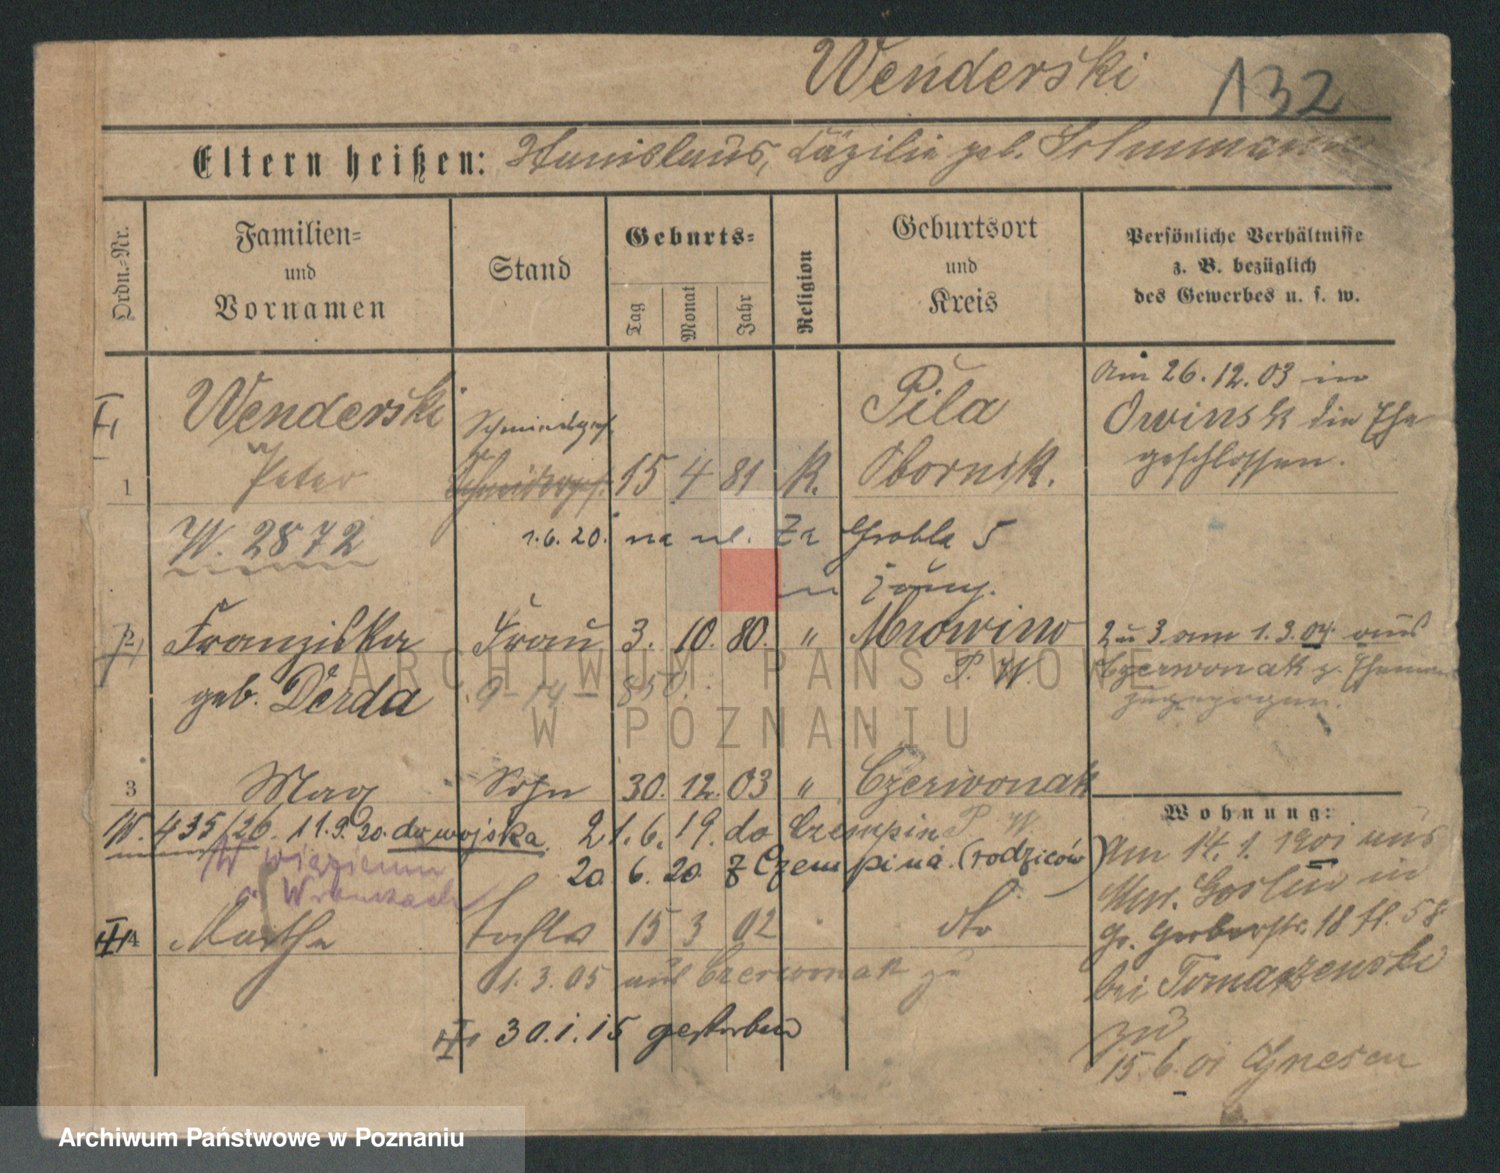 Wenderski 132
Eltern heißen: Stanislaus, Cäzilie geb.
Ordn.-Nr.
Familien- und Vornamen
Stand
Geburts-
Tag
Monat
Jahr
Religion
Geburtsort und Kreis
Persönliche Verhältnisse
z. B. bezüglich
des Gewerbes u. s. w.
1
Wenderski
Peter
15 4 81 K.
Pila
Obornik.
Am 26.12.03 in
Owinsk die Ehe
geschlossen.
W. 2872
1.6.20. na ul. Za Grobla 5
2
Franziska
geb. Derda
Frau 3. 10. 80. "
Mrowino
P. W.
2 u 3 am 1.3.04 aus
Czerwonak z.
zugezogen.
3
Max
Sohn 30. 12. 03 "
Czerwonak
P. W.
W. 435/20. 11.9.20. do wojska. 21.6.19. do Czempin
W więzieniu
w Wronkach
20. 6. 20 z Czempina (rodziców)
4
Marthe
Tochter 15 3 02
dto
1.3.05 aus Czerwonak zu
30.1.15 gestorben
Wohnung:
Am 14.1.1901 aus
Goslin in
Gr. Gerberstr. 18 H. 58
bei Tomaszewski
zu
15.6.01 Gnesen
ARCHIWUM PAŃSTWOWE
W POZNANIU
Archiwum Państwowe w Poznaniu